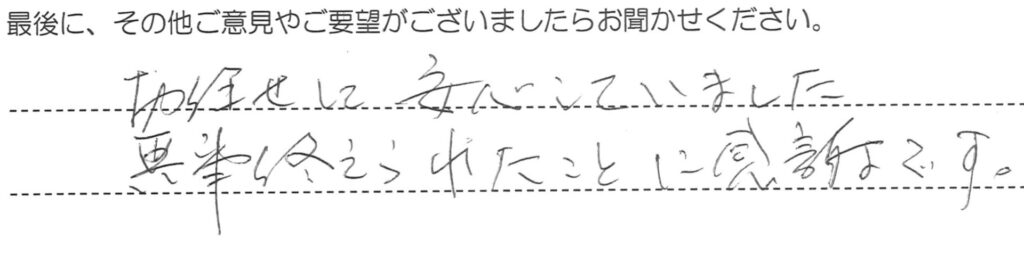 最後に、その他ご意見やご要望がございましたらお聞かせください。
お任せして安心していました
無事終えられたことに感謝です。